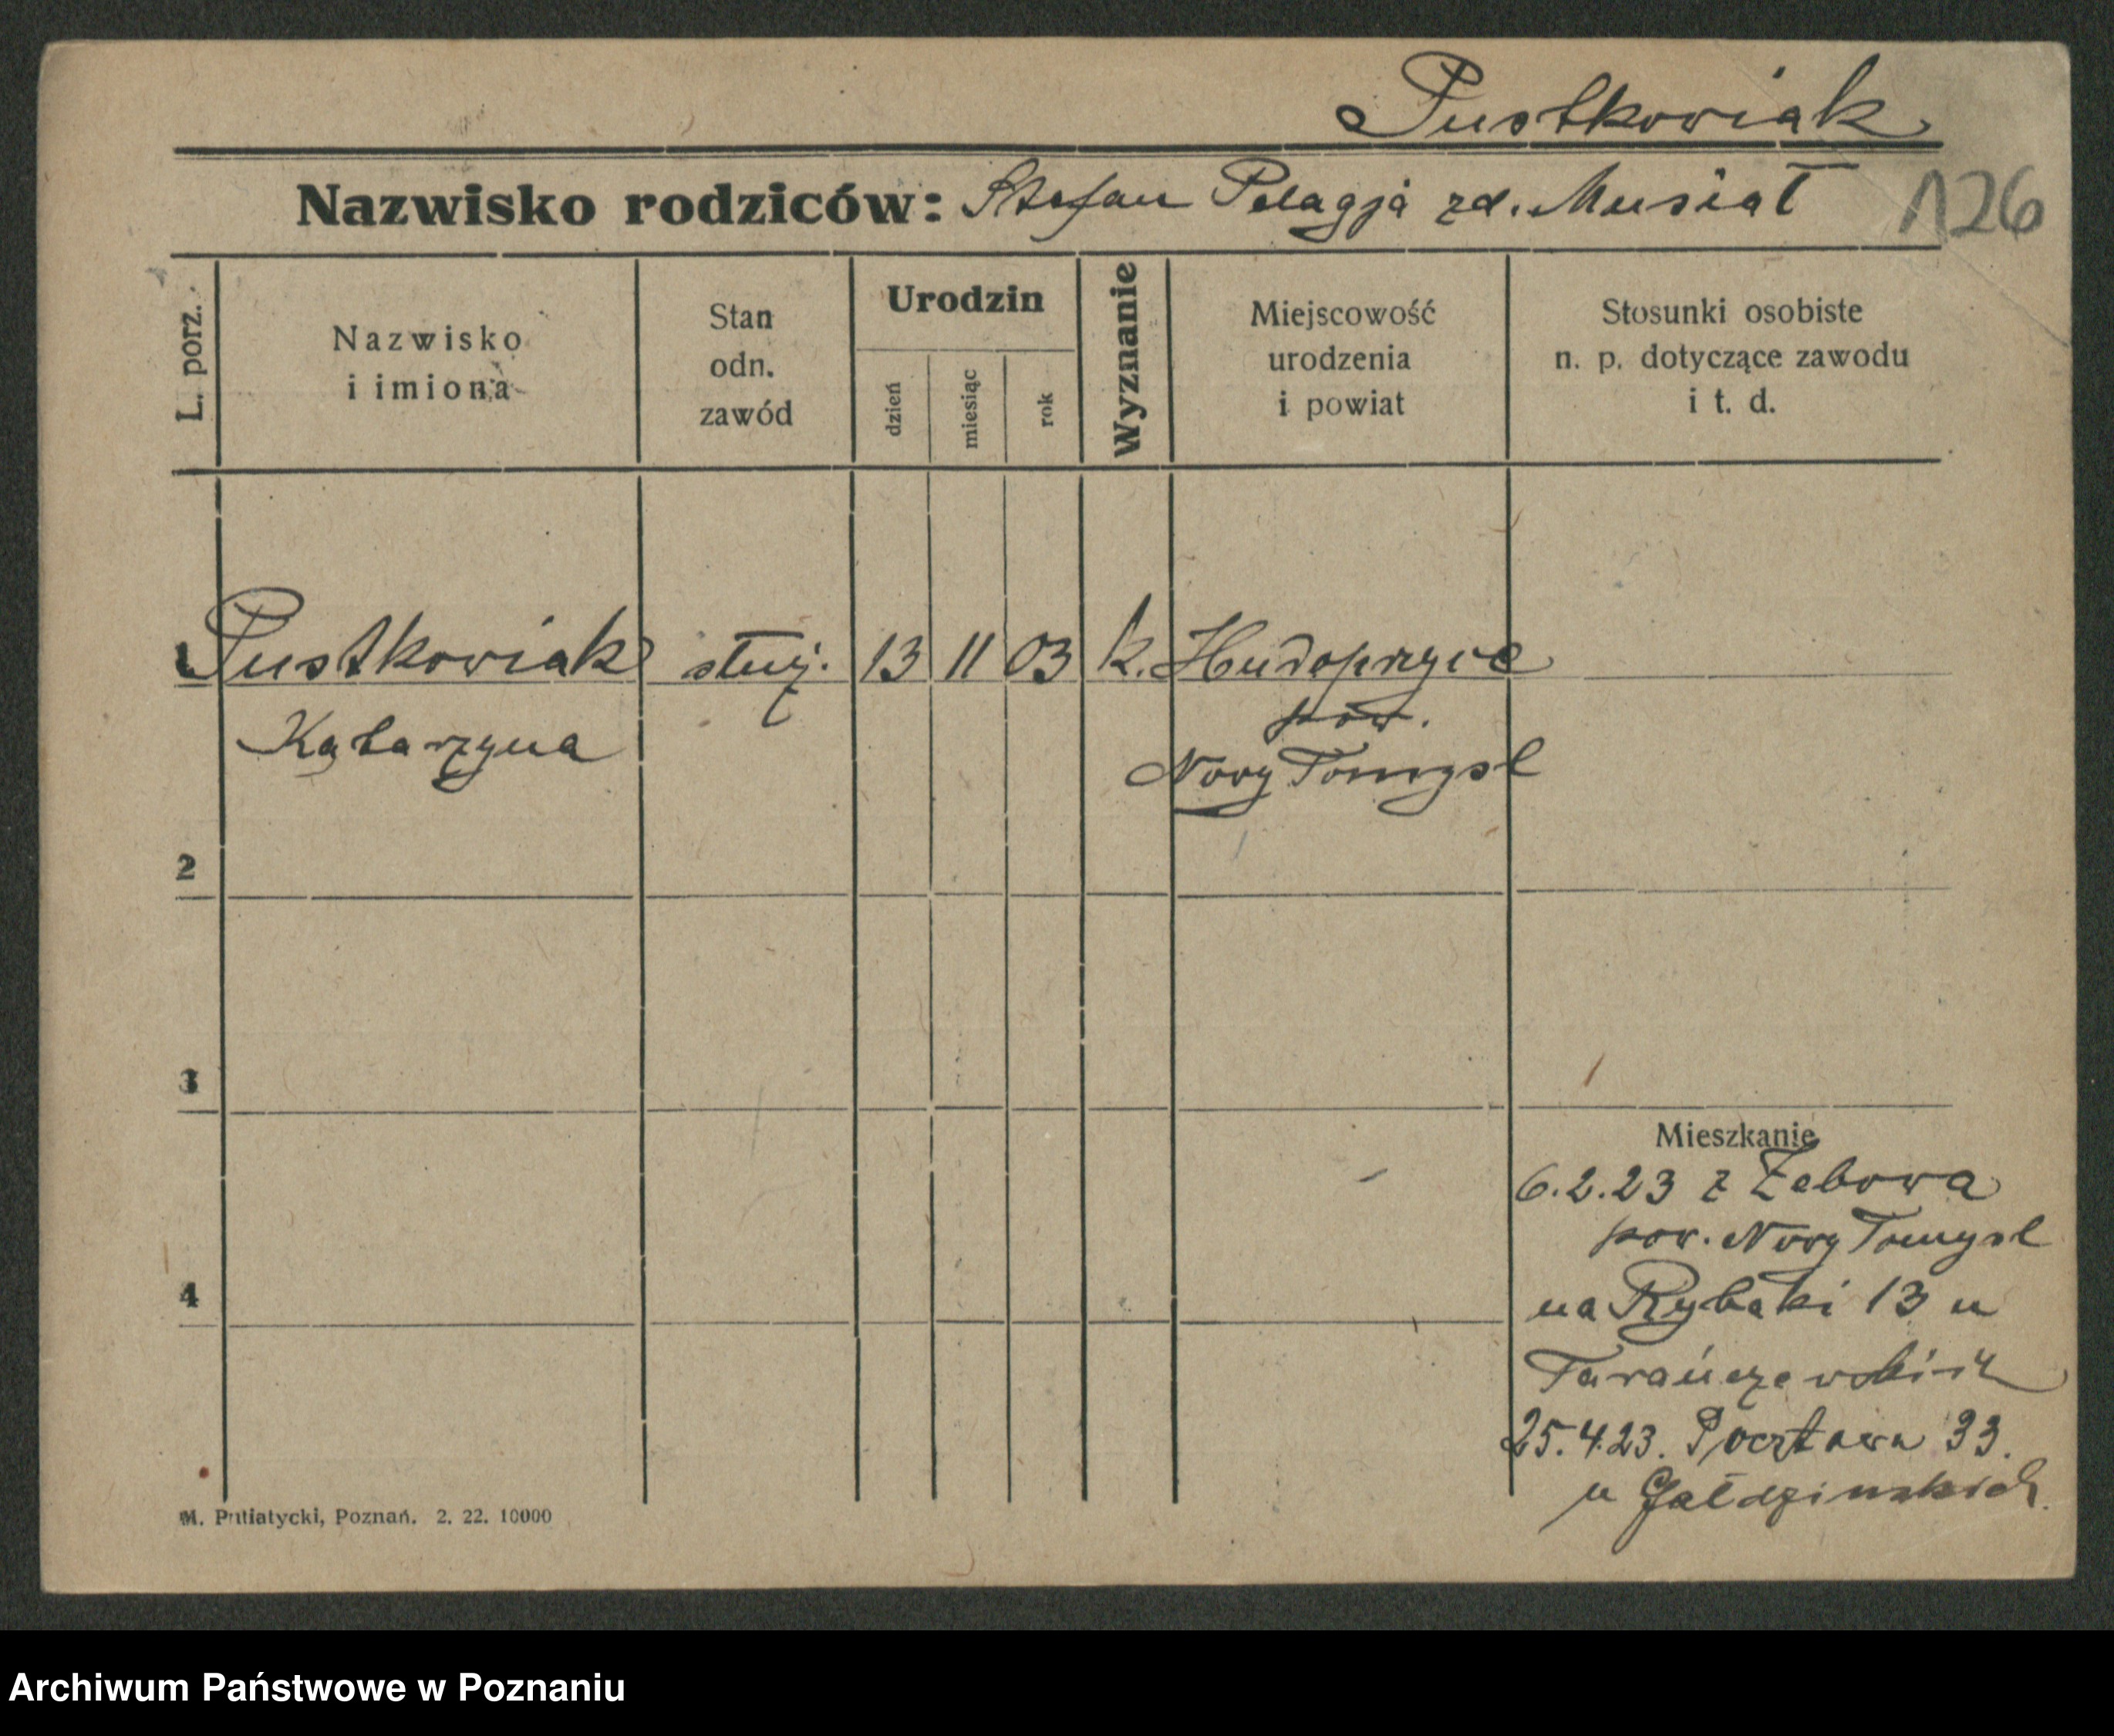 Pustkowiak
Nazwisko rodziców: Stefan Pelagja zd. Musiał
126
L. porz.
Nazwisko
i imiona
Stan
odn.
zawód
Urodzin
dzień
miesiąc
rok
Wyznanie
Miejscowość
urodzenia
i powiat
Stosunki osobiste
n. p. dotyczące zawodu
i t. d.
1 Pustkowiak służ. 13 11 03 k. Hudoprzyce
pow.
Katarzyna Nowy Tomysl
2
3
Mieszkanie
6.2.23 z Zebowa
pow. Nowy Tomysl
4
na Rybaki 13 u
Tarańczewskich
25.4.23. Pocztowa 33.
u Gałdzinskich.
M. Putiatycki, Poznań. 2. 22. 10000
Archiwum Państwowe w Poznaniu